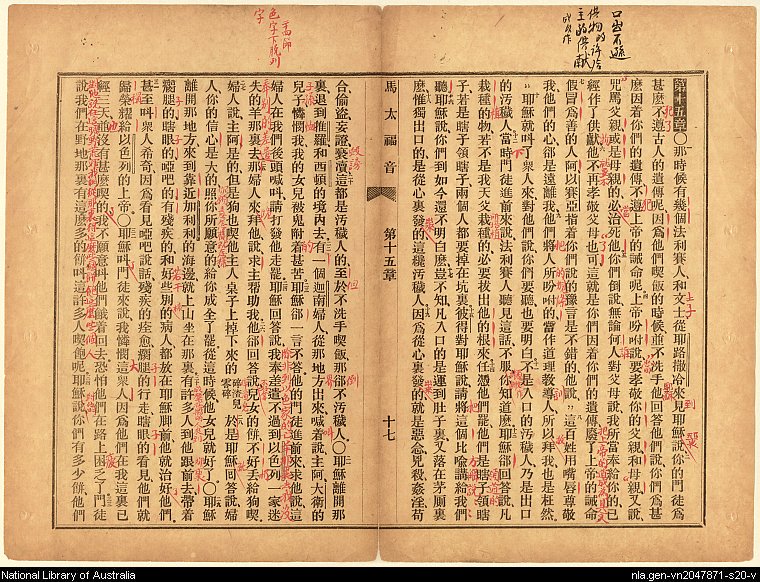 口出不遜
供物的許給
主的供獻
十四節
色字下脫列
字
第十五章○那時候有幾個法利賽人和文士從耶路撒冷來見耶穌說你的門徒爲
甚麽不遵古人的遺傳呢因爲他們喫飯的時候並不洗手他回答他們說你們爲甚
麽因着你們的遺傳不遵上帝的誡命呢上帝吩咐說要孝敬你的父親和母親又說
咒罵父親或是母親的必治死他你們倒說無論何人對父母說我所當奉給你的已
經作了供獻他不再孝敬父母也可這就是你們因着你們的遺傳廢了上帝的誡命
假冒爲善的人阿以賽亞指着你們說的豫言是不錯的他說這百姓用嘴唇尊敬
我他們的心卻是遠離我他們將人所吩咐的當作道理教導人所以拜我也是枉然
耶穌就叫了衆人來對他們說你們要聽也要明白不是入口的汚穢人乃是出口
的汚穢人當時門徒進前來說法利賽人聽見這話不服你知道麽耶穌卻回答說凡
栽種的物若不是我天父栽種的必要拔出他的根來任憑他們罷他們是瞎子領瞎
子若是瞎子領瞎子兩個人都要掉在坑裏彼得對耶穌說請將這個比喻講給我們
聽耶穌說你們到如今還不明白麽豈不知凡入口的是運到肚子裏又落在茅厠裏
麽惟獨出口的是從心裏發的這纔汚穢人因爲從心裏發的就是惡念兇殺姦淫苟
馬太福音 第十五章 十七
合偷盜妄證褻瀆這都是汚穢人的至於不洗手喫飯那卻不汚穢人○耶穌離開那
裏退到推羅和西頓的境內去有一個迦南婦人從那地方出來喊着說主阿大衛的
兒子憐憫我我的女兒被鬼附着甚苦耶穌卻一言不答他的門徒進前來求他說這
婦人在我們後頭喊叫請打發他走罷耶穌回答說我奉差遣不過到以色列一家迷
失的羊那裏去那婦人來拜他說求主幫助我他卻回答說兒女的餅不好丟給狗喫
婦人說主阿是的但是狗也喫他主人桌子上掉下來的碎渣兒零碎於是耶穌回答說婦
人你的信心是大的照你所願意的給你成全了罷從這時候他女兒就好了○耶穌
離開那地方來到靠近加利利的海邊就上山坐在那裏有許多人到他跟前去帶着
瘸腿的瞎眼的啞吧的有殘疾的和好些別的病人都放在耶穌脚前他就治好他們
甚至叫衆人希奇因爲看見啞吧說話殘疾的痊愈瘸腿的行走瞎眼的看見他們就
歸榮耀給以色列的上帝○耶穌叫門徒來說我憐憫這衆人因爲他們在我這裏已
經三天並沒有甚麽喫的我不願意叫他們餓着回去恐怕他們在路上困乏了門徒
說我們在野地那裏有這麽多的餅叫這許多人喫飽呢耶穌說你們有多少餅他們
National Library of Australia
nla.gen-vn2047871-s20-v